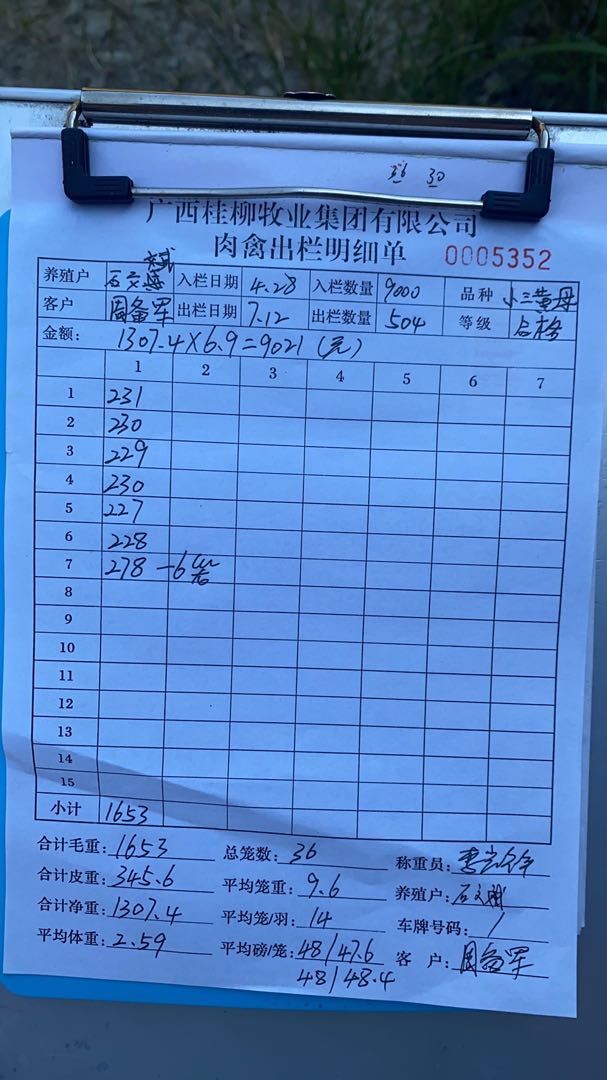 36 30
广西桂柳牧业集团有限公司
肉禽出栏明细单 0005352
养殖户 石文斌 入栏日期 4.28 入栏数量 9000 品种 小三黄母
客户 周备军 出栏日期 7.12 出栏数量 504 等级 合格
金额: 1307.4×6.9=9021(元)
1 2 3 4 5 6 7
1 231
2 230
3 229
4 230
5 227
6 228
7 278 -6笼
8
9
10
11
12
13
14
15
小计 1653
合计毛重: 1653 总笼数: 36 称重员:
合计皮重: 345.6 平均笼重: 9.6 养殖户: 石文斌
合计净重: 1307.4 平均笼/羽: 14 车牌号码: /
平均体重: 2.59 平均磅/笼: 48/47.6 客户: 周备军
48/48.4